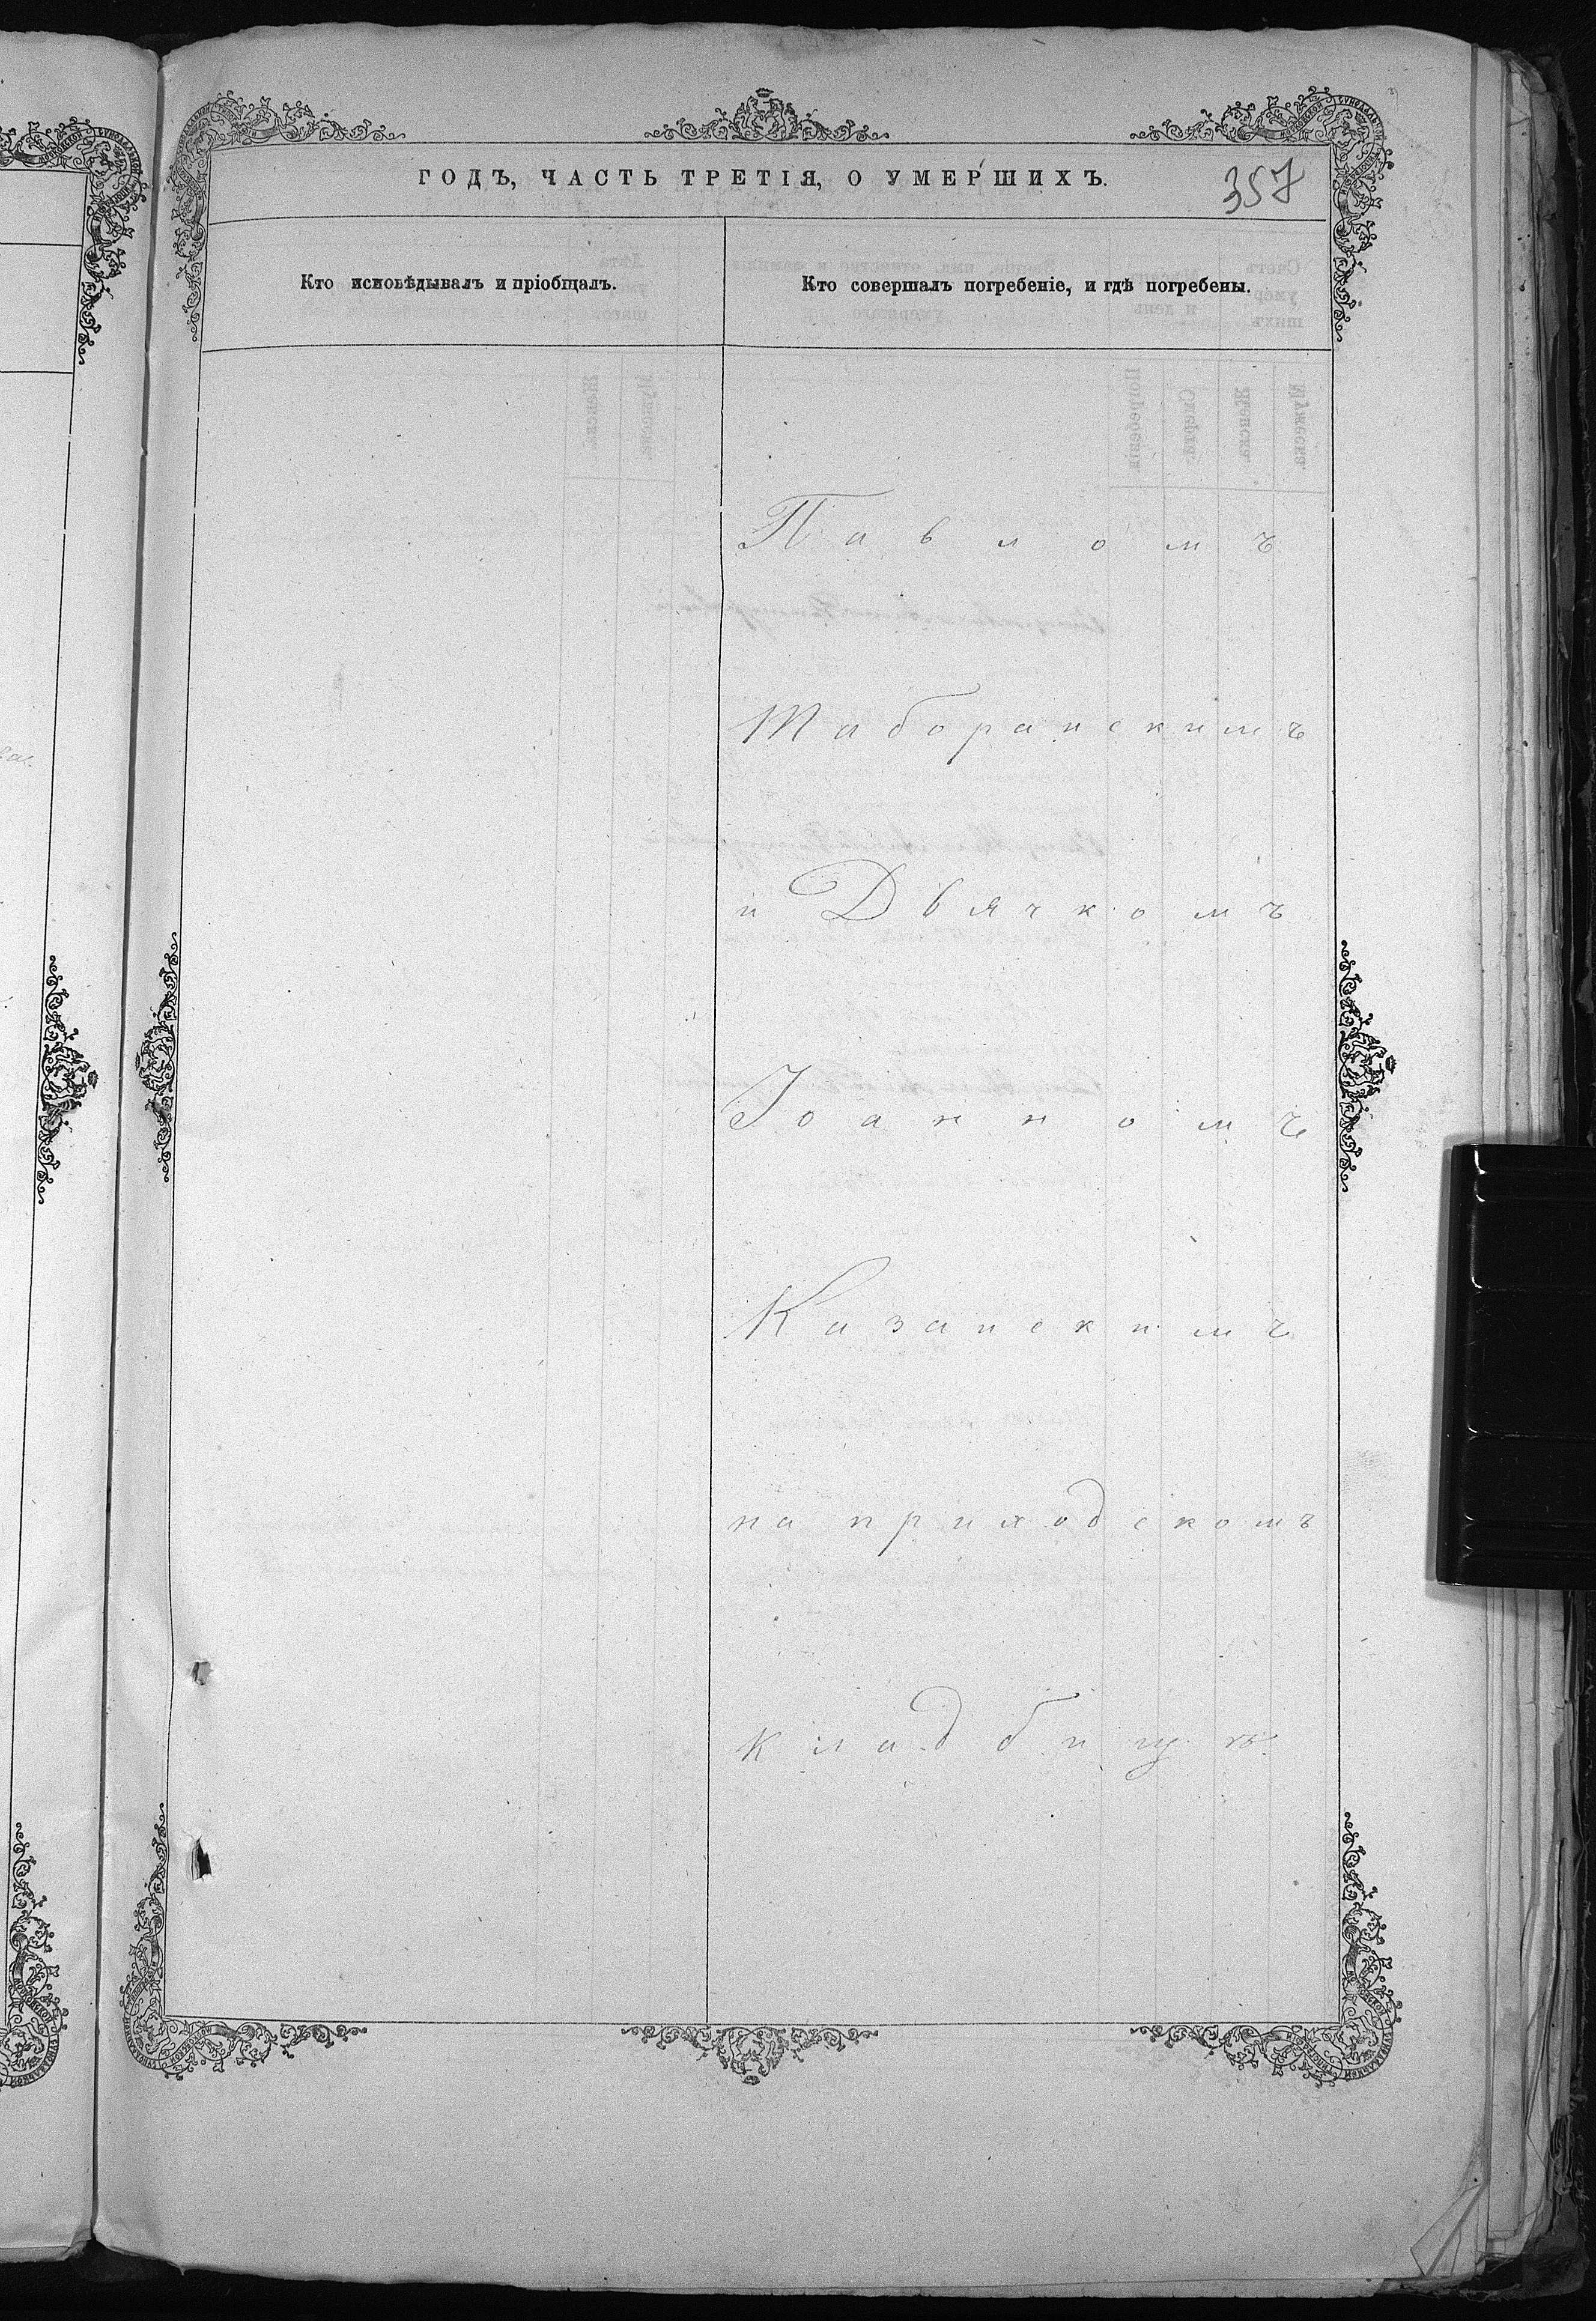 ГОДЪ, ЧАСТЬ ТРЕТІЯ, О УМЕРШИХЪ.
357
Кто исповѣдывалъ и пріобщалъ.
Кто совершалъ погребеніе, и гдѣ погребены.
Павломъ
Таборанскимъ
и Дьячкомъ
Іоанномъ
Казанскимъ
на приходскомъ
кладбищѣ